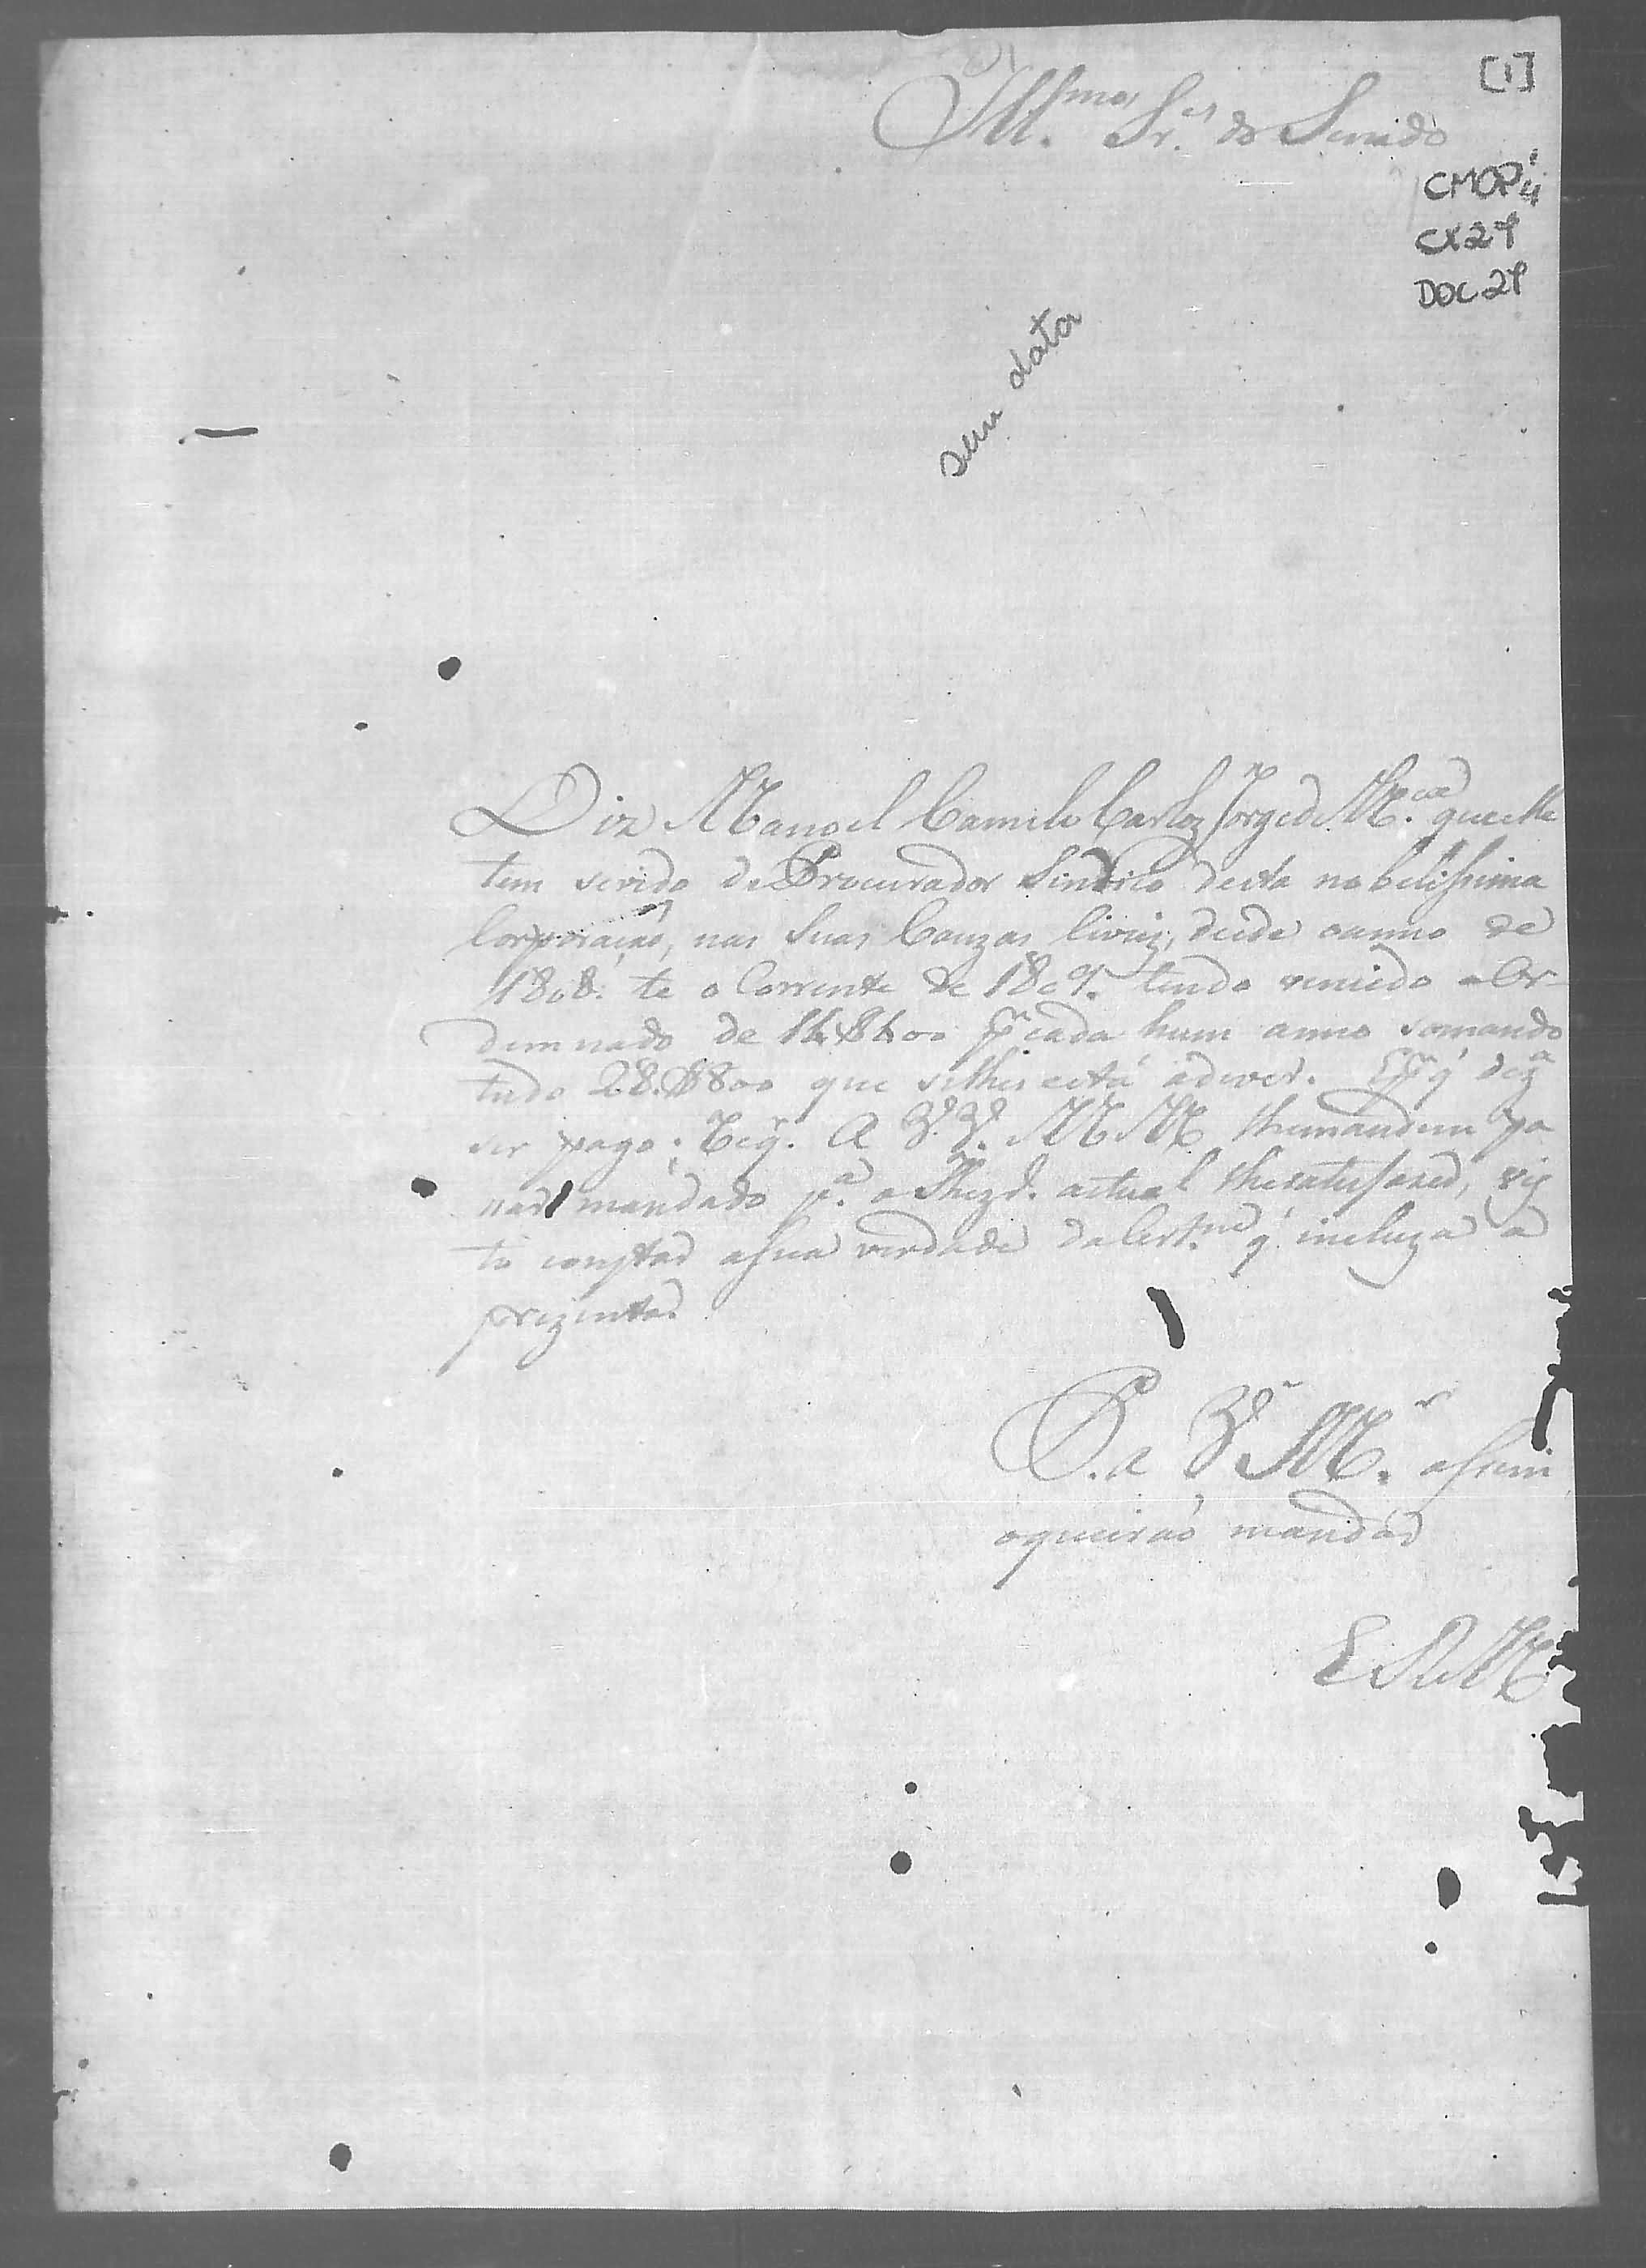 [1]
Ill.mos Sr.es do Senado
CMOP
CX 29
DOC 29
sem data
Diz Manoel Camilo Carloz Jorge de M. que elle
tem servido de Procurador Sindico desta nobelissima
Corporaçaõ, nas Suas Cauzas Civeiz, desde oanno de
1808. te o Corrente de 1809. tendo vencido o Or-
demnado de 14$400 cada hum anno somando
tudo 28.$800 que selhes está adever. q'
ser pago; A V.V. M M lhemandem pa
sar mandado p.a o actual lhesatisfazer, viz
to constar asua verdade da q' incluza a
prezenta.
P. a V M. assim
oqueiraõ mandar
E R M